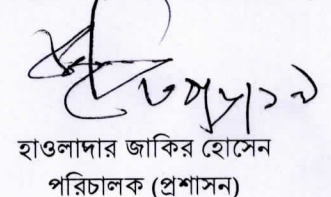 হাওলাদার জাকির হোসেন
পরিচালক (প্রশাসন)